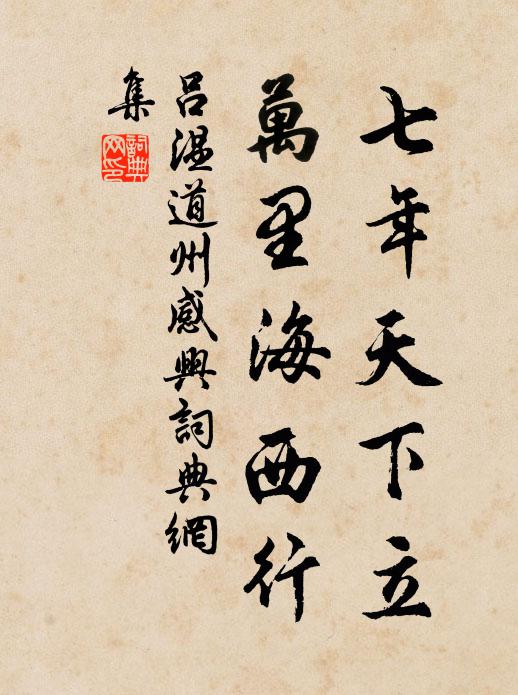 七年天下立
萬里海西行
呂溫道州感興詞典網
集
詞典網印